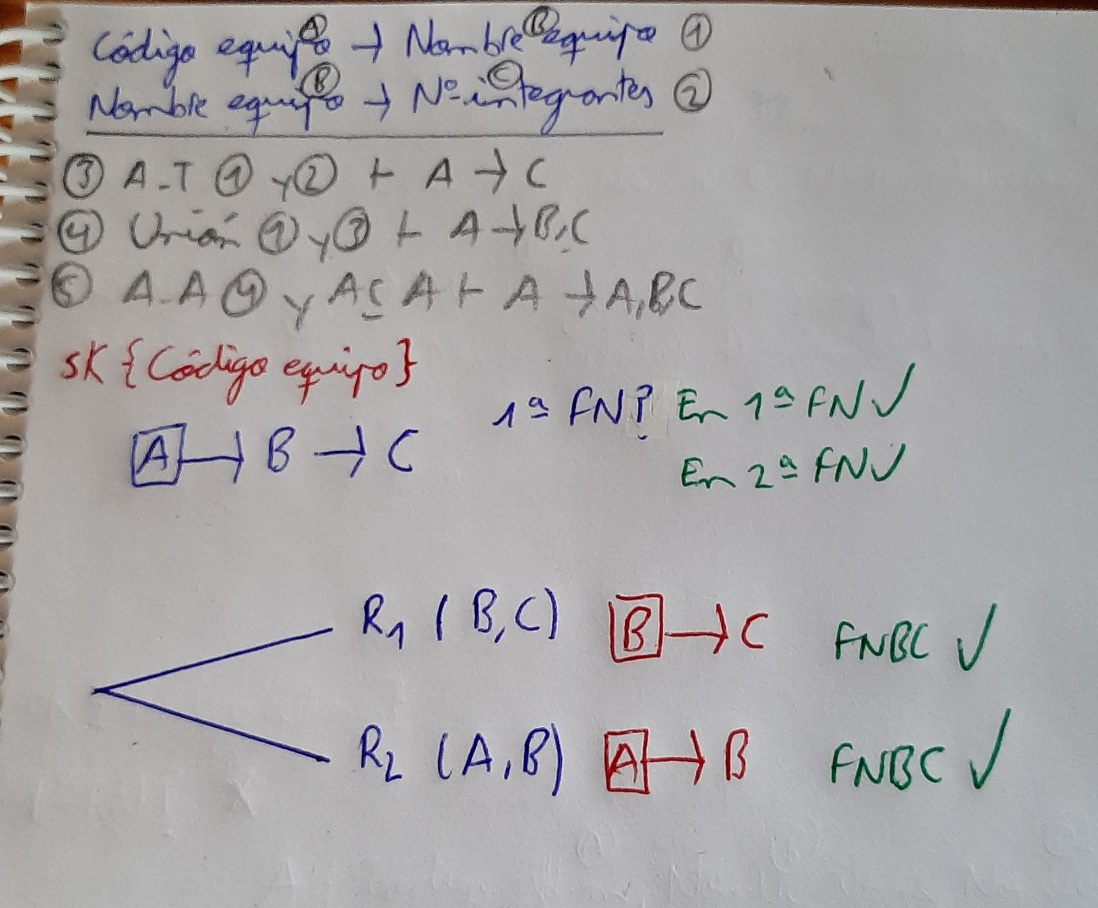 Código equipo Ⓐ → Nombre equipo Ⓑ ①
Nombre equipo Ⓑ → Nº integrantes Ⓒ ②
③ A.T ① y ② ⊢ A → C
④ Unión ① y ③ ⊢ A → B,C
⑤ A.A ④ y A ⊆ A ⊢ A → A,B,C
SK {Código equipo}
1ª FN? En 1ª FN ✓
A → B → C
En 2ª FN ✓
R1 (B,C) B → C FNBC ✓
R2 (A,B) A → B FNBC ✓